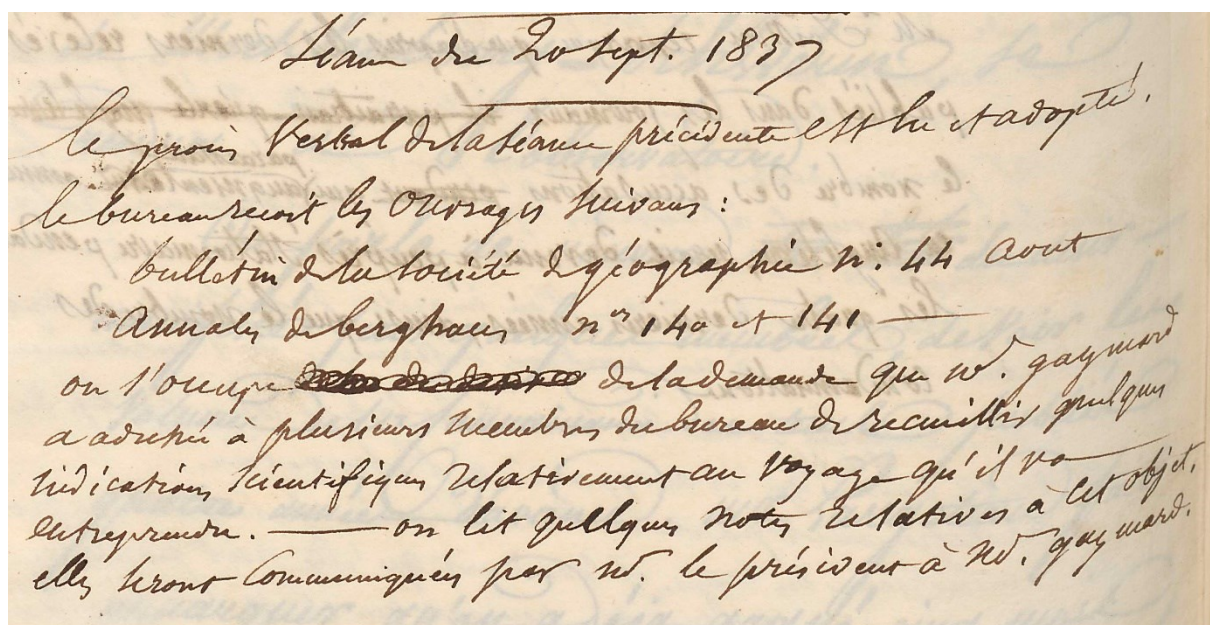 Séance du 20 Sept. 1837
le procès Verbal de la séance précédente est lu et adopté.
le bureau recoit les Ouvrages suivans :
bulletin de la Société de géographie n°. 44 Aout
Annales de berghaus nos 140 et 141 —
on s'occupe de la demande que M. gaymard
a adressée à plusieurs membres du bureau de recueillir quelques
indications scientifiques relativement au Voyage qu'il va
entreprendre. — on lit quelques notes relatives à cet objet.
elles seront Communiquées par M. le président à M. gaymard.